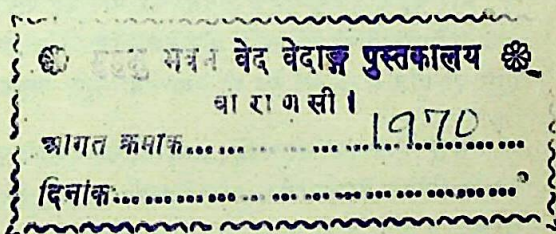 भवन वेद वेदाङ्ग पुस्तकालय
वाराणसी।
आगत क्रमांक.................1970..................
दिनांक.................................................